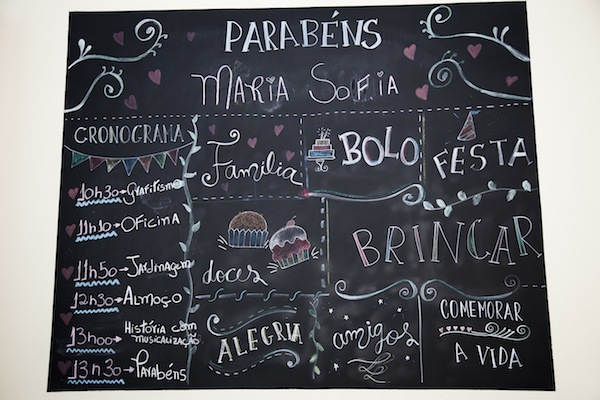 PARABÉNS
MARIA SOFIA
CRONOGRAMA
10h30→Grafitismo
11h10→OFICINA
11h50→Jardinagem
12h30→ALMOÇO
13h00→HISTÓRIA COM
MUSICALIZAÇÃO
13h30→PARABÉNS
Familia
BOLO
FESTA
doces
BRINCAR
ALEGRIA
amigos
COMEMORAR
A VIDA